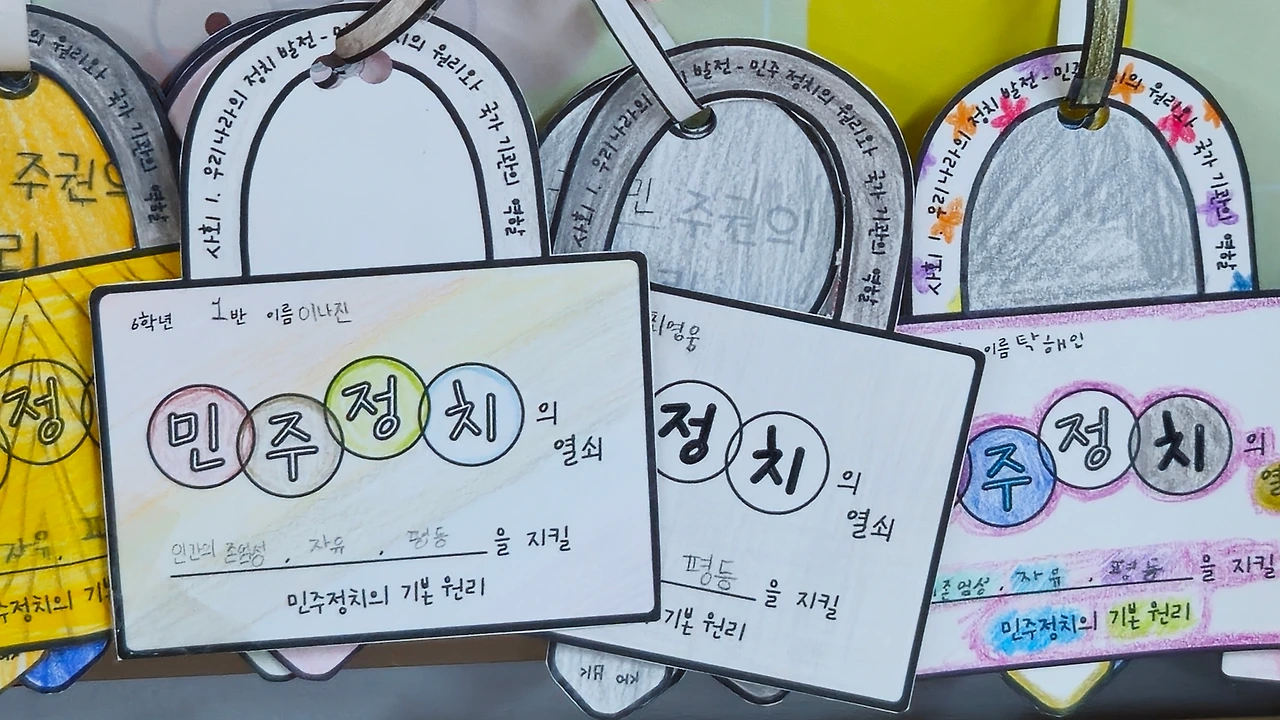 의 원리와 국가 기관의 역할
주권의
리
정
자유,
주정치의 기본
사회 1. 우리나라의 정치 발전 - 민주 정치의 원리와 국가 기관의 역할
6학년 1반 이름 이나진
민주정치의
열쇠
인간의 존엄성, 자유, 평등을 지킬
민주정치의 기본 원리
사회 1. 우리나라의 정치 발전 - 민주 정치의 원리와 국가 기관의 역할
민 주권의
최영웅
정치의
열쇠
평등을 지킬
기본 원리
사회 1. 우리나라의 정치 발전 - 민주 정치의 원리와 국가 기관의 역할
이름 탁해인
주정치의
열
존엄성, 자유, 평등을 지킬
민주정치의 기본 원리